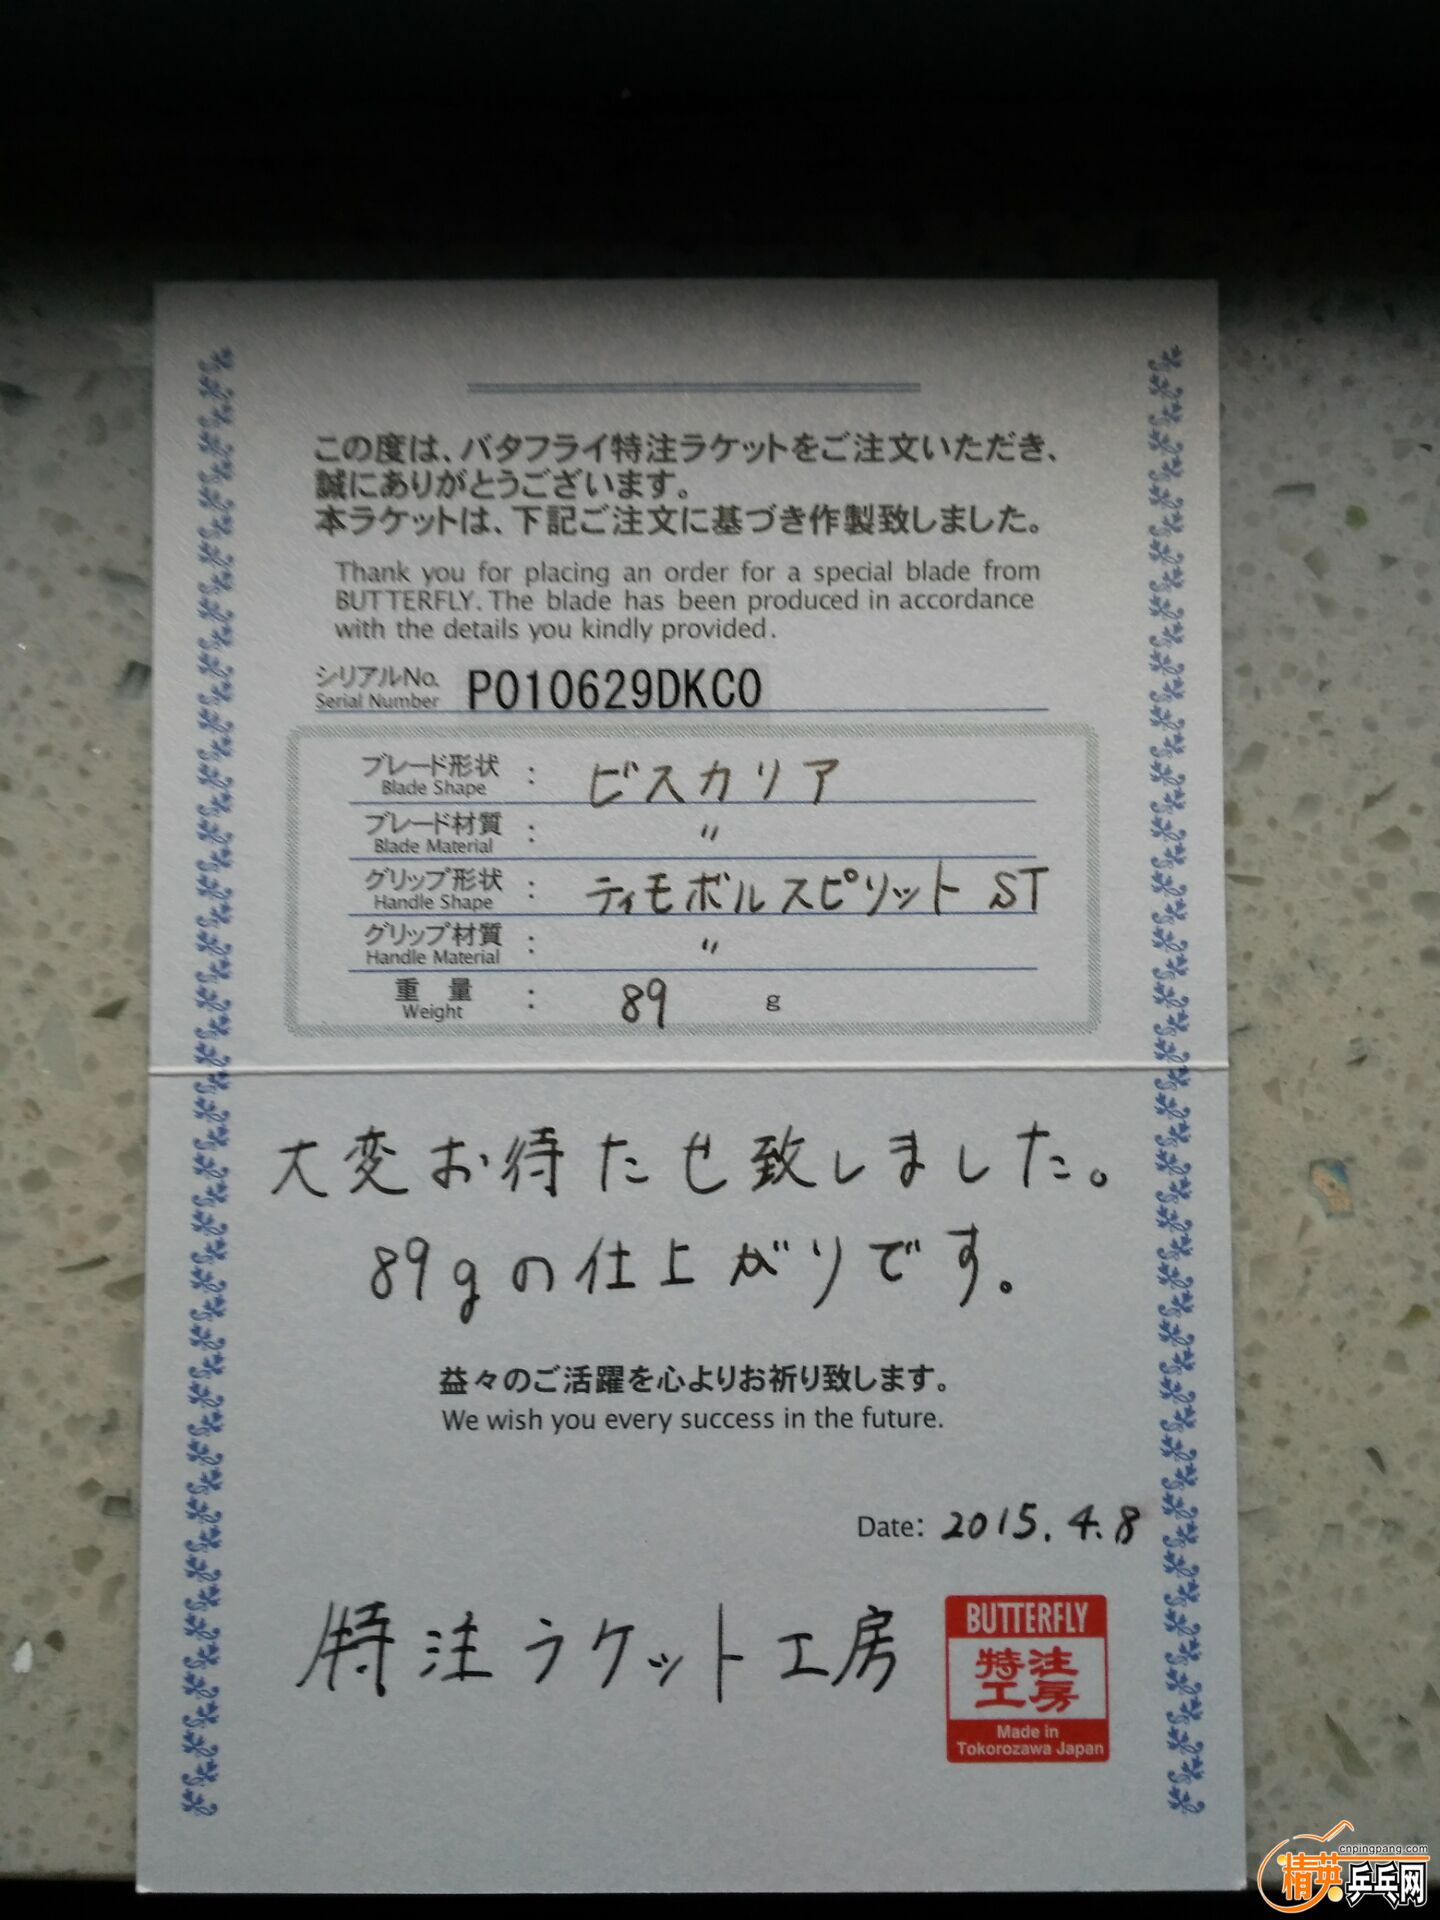 この度は、バタフライ特注ラケットをご注文いただき、
誠にありがとうございます。
本ラケットは、下記ご注文に基づき作製致しました。
Thank you for placing an order for a special blade from
BUTTERFLY. The blade has been produced in accordance
with the details you kindly provided.
シリアルNo.
Serial Number P010629DKC0
ブレード形状 : ビスカリア
Blade Shape
ブレード材質 : 〃
Blade Material
グリップ形状 : ティモボルスピリット ST
Handle Shape
グリップ材質 : 〃
Handle Material
重量 : 89 g
Weight
大変お待たせ致しました。
89gの仕上がりです。
益々のご活躍を心よりお祈り致します。
We wish you every success in the future.
Date: 2015.4.8
特注ラケット工房
BUTTERFLY
特注
工房
Made in
Tokorozawa Japan
cnpingpang.com
精英乒乓网